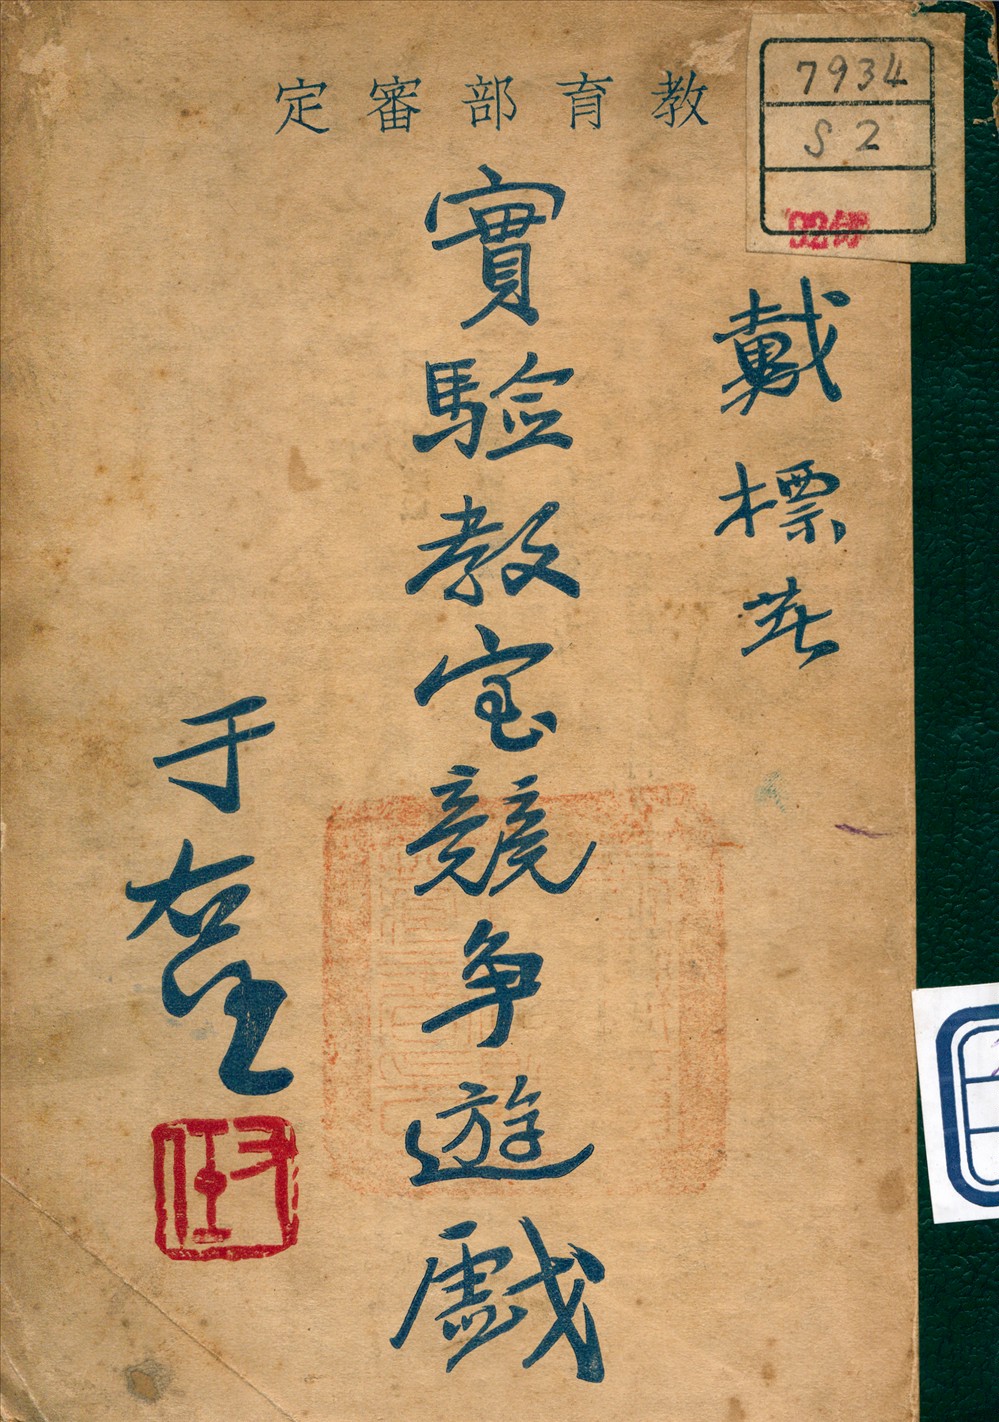 教育部審定
7934
S2
戴標著
實驗教室競爭遊戲
于右任
右任